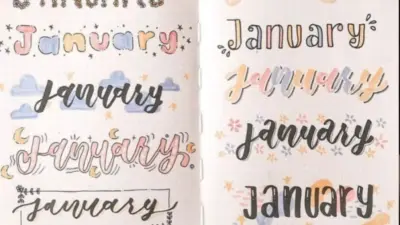 January
January
January
January
January
January
January
January